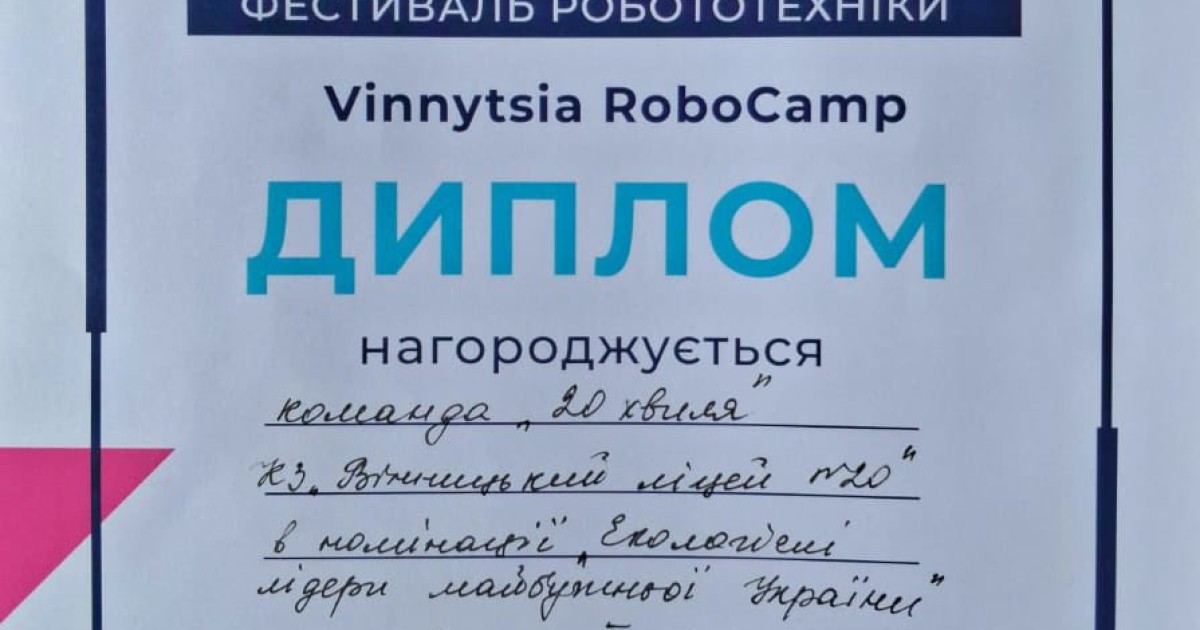 ФЕСТИВАЛЬ РОБОТОТЕХНІКИ
Vinnytsia RoboCamp
ДИПЛОМ
нагороджується
команда „20 хвиля"
КЗ „Вінницький ліцей №20"
в номінації „Екологічні
лідери майбутньої України"